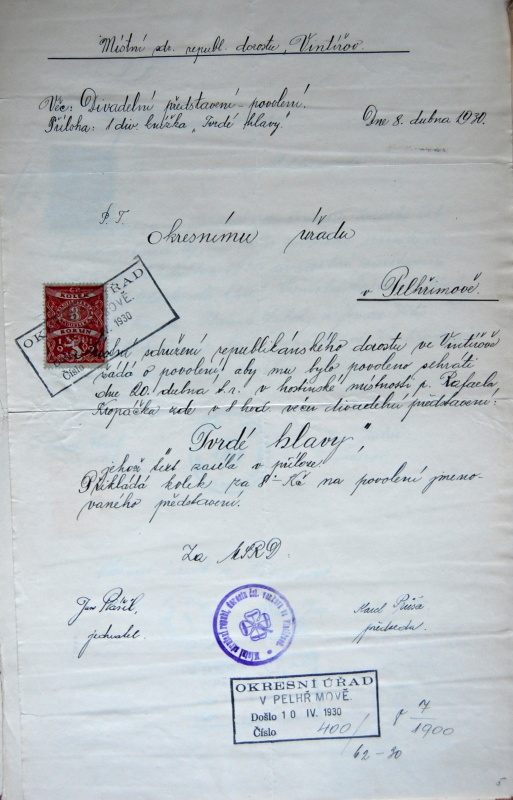 Místní sdr. republ. dorostu, Vintířov.
Věc: Divadelní představení - povolení.
Příloha: 1 div. knížka „Tvrdé hlavy“
Dne 8. dubna 1930.
P. T.
Okresnímu úřadu
v Pelhřimově.
KOLEK
KORUN
OKRESNÍ ÚŘAD
IV. 1930
Číslo
sdružení republikánského dorostu ve Vintířově
žádá o povolení, aby mu bylo povoleno sehráti
dne 20. dubna t.r. v hostinské místnosti p. Rafaela
Kropáčka zde v 8 hod. večer divadelní představení:
"Tvrdé hlavy",
jehož text zasílá v příloze.
Přikládá kolek za 8 Kč na povolení jmeno-
vaného představení.
Za MSRD:
Jan
jednatel.
Karel
předseda
OKRESNÍ ÚŘAD
V PELHŘIMOVĚ.
Došlo 10 IV. 1930
Číslo 400/
7
1900
62-30
5